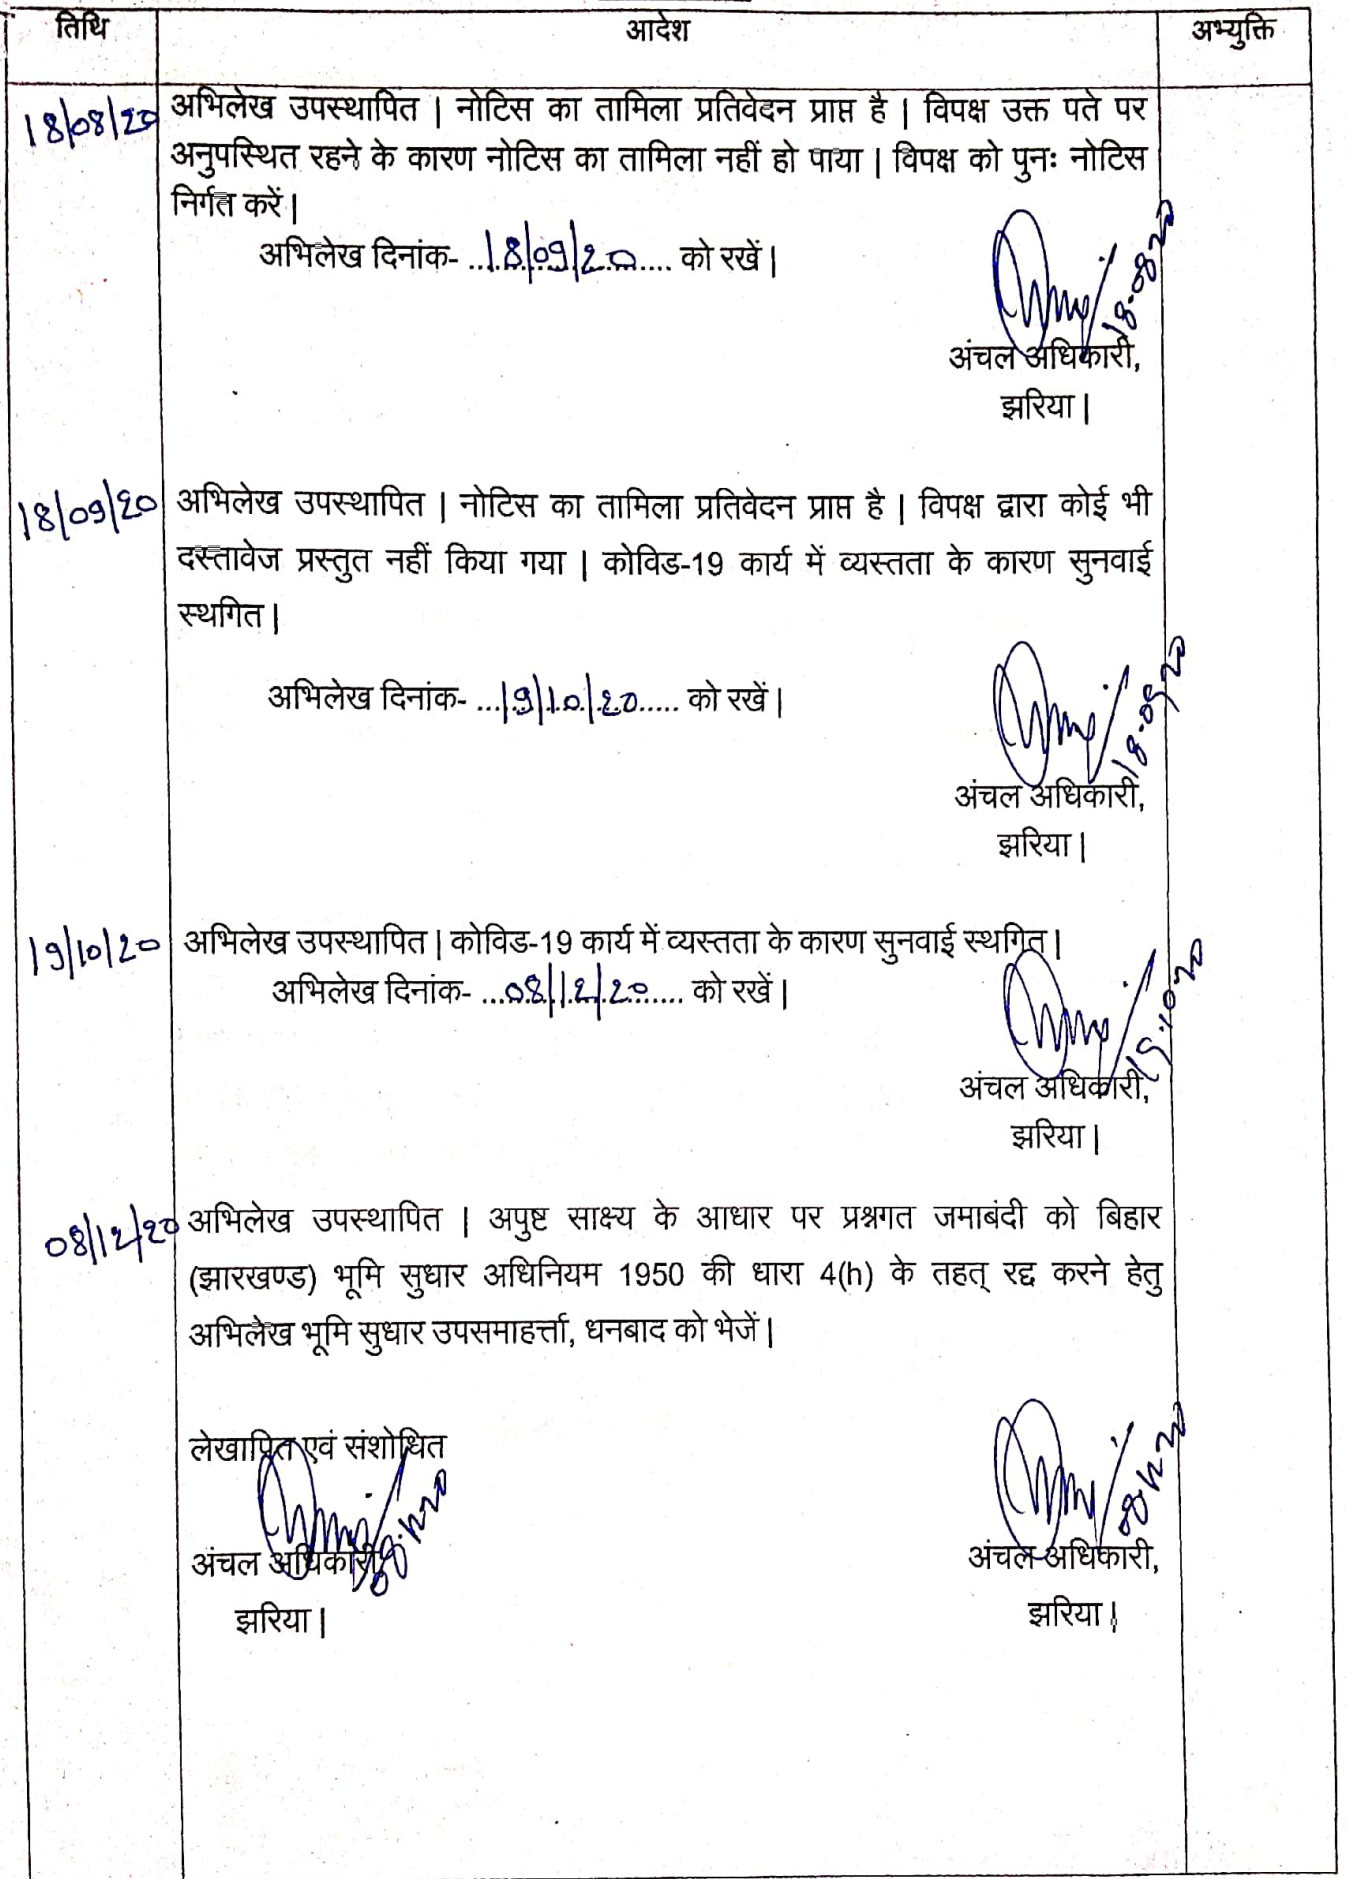 तिथि आदेश अभ्युक्ति
18/08/20 अभिलेख उपस्थापित | नोटिस का तामिला प्रतिवेदन प्राप्त है | विपक्ष उक्त पते पर
अनुपस्थित रहने के कारण नोटिस का तामिला नहीं हो पाया | विपक्ष को पुनः नोटिस
निर्गत करें |
अभिलेख दिनांक- ...18/09/20... को रखें |
18.08.20
अंचल अधिकारी,
झरिया |
18/09/20 अभिलेख उपस्थापित | नोटिस का तामिला प्रतिवेदन प्राप्त है | विपक्ष द्वारा कोई भी
दस्तावेज प्रस्तुत नहीं किया गया | कोविड-19 कार्य में व्यस्तता के कारण सुनवाई
स्थगित |
अभिलेख दिनांक- ...19/10/20..... को रखें |
18.09.20
अंचल अधिकारी,
झरिया |
19/10/20 अभिलेख उपस्थापित | कोविड-19 कार्य में व्यस्तता के कारण सुनवाई स्थगित |
अभिलेख दिनांक- ...08/12/20...... को रखें |
19.10.20
अंचल अधिकारी,
झरिया |
08/12/20 अभिलेख उपस्थापित | अपुष्ट साक्ष्य के आधार पर प्रश्नगत जमाबंदी को बिहार
(झारखण्ड) भूमि सुधार अधिनियम 1950 की धारा 4(h) के तहत् रद्द करने हेतु
अभिलेख भूमि सुधार उपसमाहर्त्ता, धनबाद को भेजें |
लेखापित एवं संशोधित
08.12.20 08.12.20
अंचल अधिकारी, अंचल अधिकारी,
झरिया | झरिया |